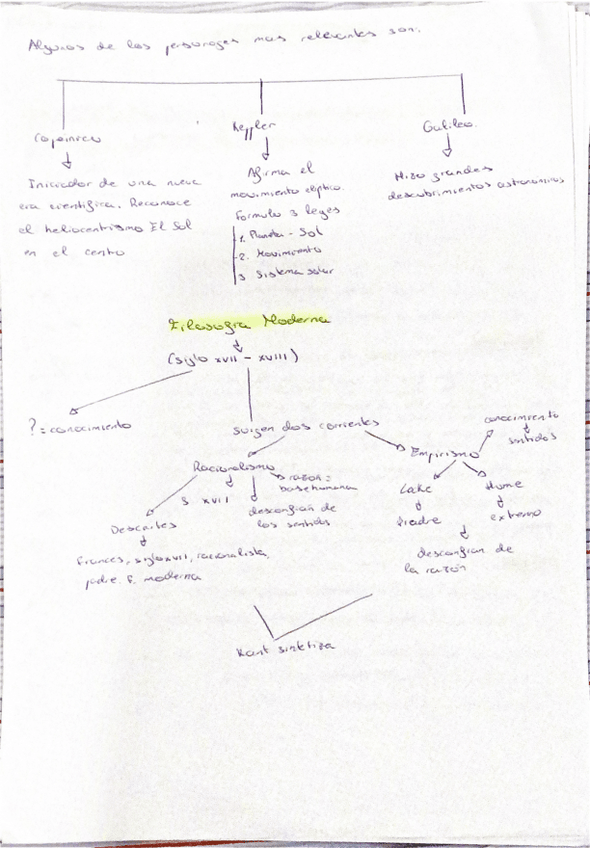 Algunos de los personages mas relevantes son:
Copérnico
Iniciador de una nueva
era cientifica. Reconoce
el heliocentrismo El Sol
en el centro
Keppler
Afirma el
movimiento eliptico.
Formulo 3 leyes
1. Planeta - Sol
2. Movimiento
3 Sistema solar
Galileo
Hizo grandes
descubrimientos astronomicos
Filosofia Moderna
(siglo XVII - XVIII)
? = conocimiento
surgen dos corrientes
Racionalismo
S XVII
razón =
base humana
desconfian de
los sentidos
Descartes
frances, siglo XVII, racionalista,
padre F. moderna
Empirismo
conocimiento
sentidos
Locke
Padre
Hume
extremo
desconfian de
la razón
Kant sintetiza